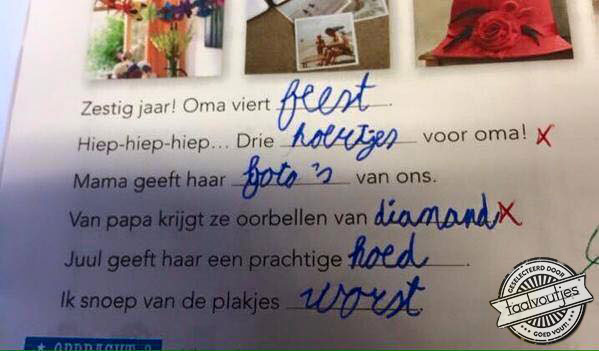 Zestig jaar! Oma viert feest.
Hiep-hiep-hiep... Drie hoertjes voor oma! x
Mama geeft haar foto's van ons.
Van papa krijgt ze oorbellen van diamand x
Juul geeft haar een prachtige hoed.
Ik snoep van de plakjes worst.
GESELECTEERD DOOR
taalvoutjes
GOED VOUT!